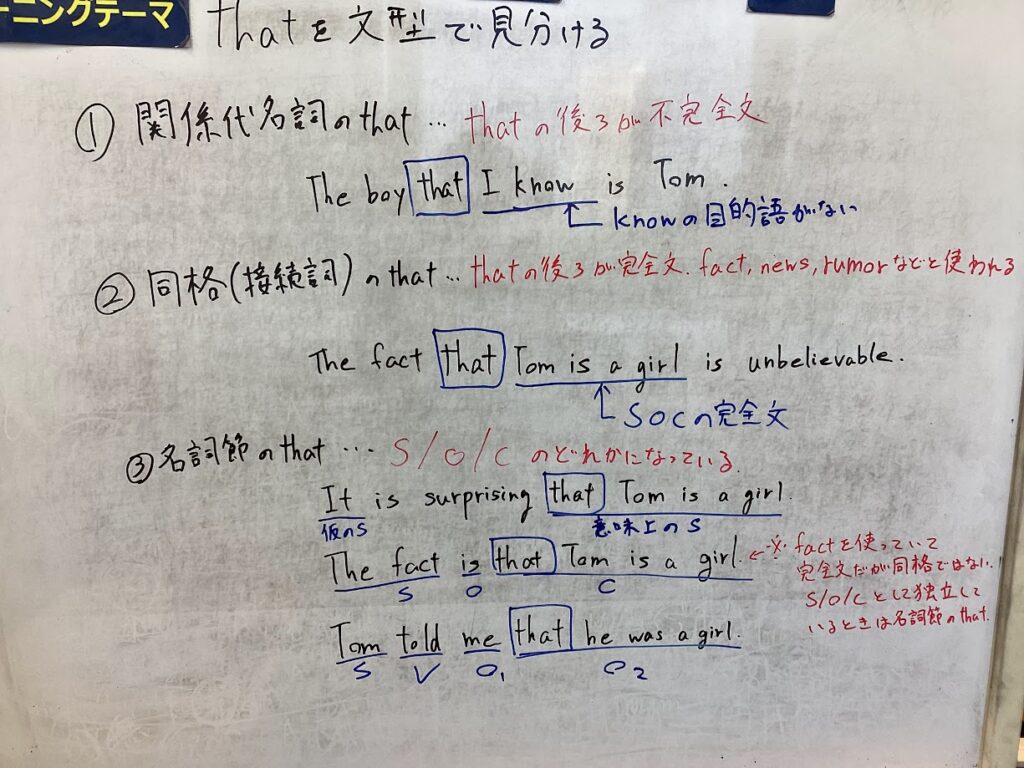 ーニングテーマ
thatを文型で見分ける
① 関係代名詞のthat … thatの後ろが不完全文
The boy that I know is Tom.
knowの目的語がない
② 同格(接続詞)のthat … thatの後ろが完全文. fact, news, rumorなどと使われる
The fact that Tom is a girl is unbelievable.
SOCの完全文
③ 名詞節のthat … S/O/Cのどれかになっている.
It is surprising that Tom is a girl.
仮のS 意味上のS
The fact is that Tom is a girl. ←※ factを使っていて
S O C
完全文だが同格ではない!
S/O/Cとして独立して
いるときは名詞節のthat.
Tom told me that he was a girl.
S V O1 O2